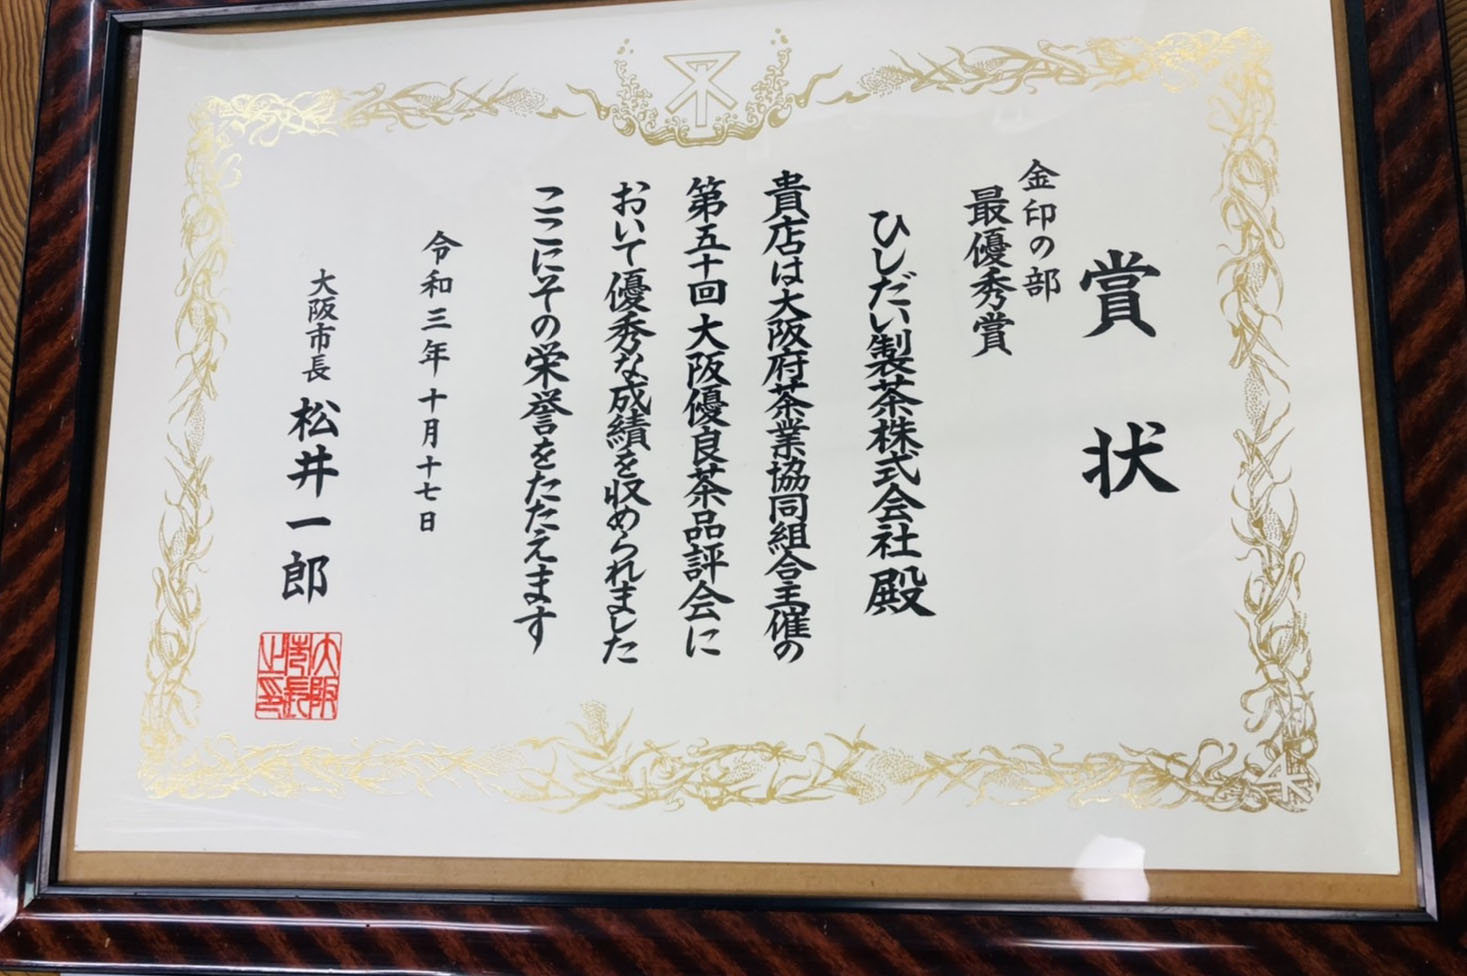 賞状
金印の部
最優秀賞
ひしだい製茶株式会社 殿
貴店は大阪府茶業協同組合主催の
第五十回大阪優良茶品評会に
おいて優秀な成績を収められました
ここにその栄誉をたたえます
令和三年十月十七日
大阪市長 松井一郎
大阪
市長
之印